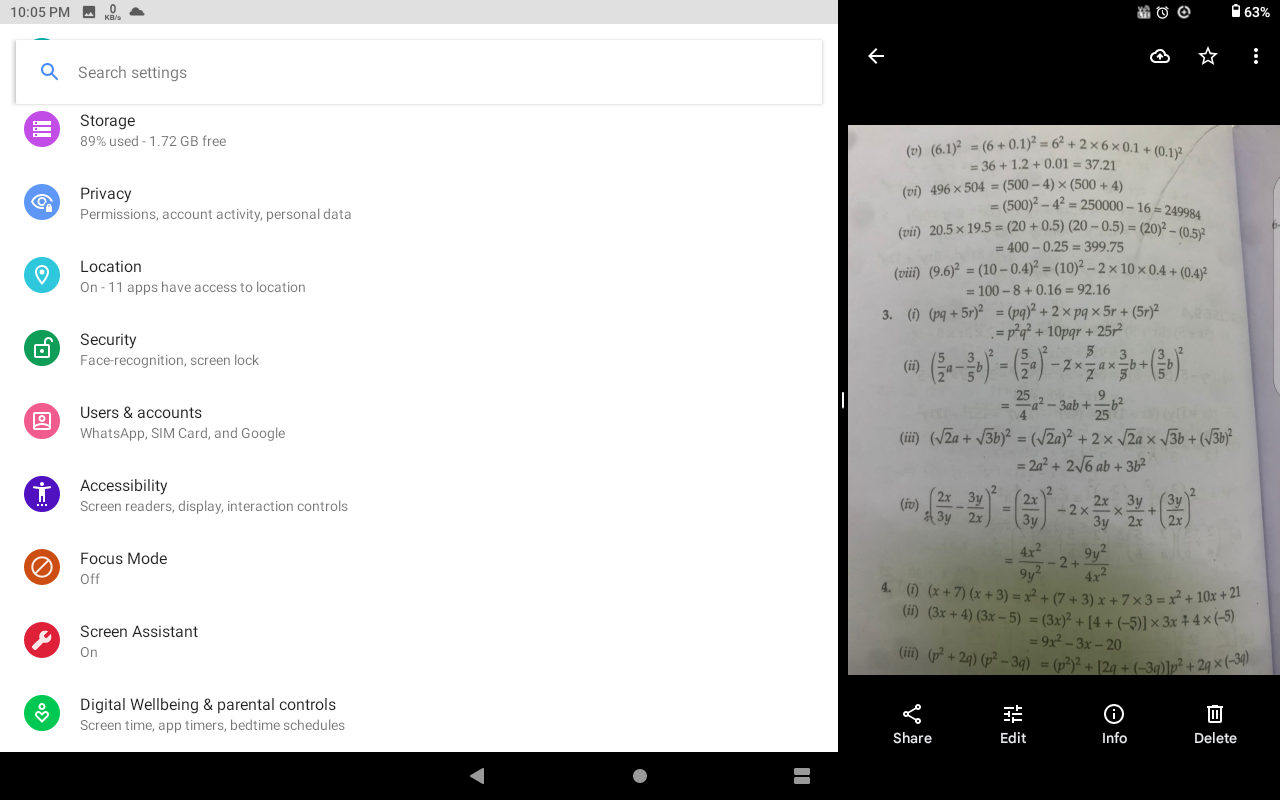 10:05 PM 0 KB/s
63%
Search settings
Storage
89% used - 1.72 GB free
Privacy
Permissions, account activity, personal data
Location
On - 11 apps have access to location
Security
Face-recognition, screen lock
Users & accounts
WhatsApp, SIM Card, and Google
Accessibility
Screen readers, display, interaction controls
Focus Mode
Off
Screen Assistant
On
Digital Wellbeing & parental controls
Screen time, app timers, bedtime schedules
(v) (6.1)² = (6 + 0.1)² = 6² + 2 × 6 × 0.1 + (0.1)²
= 36 + 1.2 + 0.01 = 37.21
(vi) 496 × 504 = (500 – 4) × (500 + 4)
= (500)² – 4² = 250000 – 16 = 249984
(vii) 20.5 × 19.5 = (20 + 0.5) (20 – 0.5) = (20)² – (0.5)²
= 400 – 0.25 = 399.75
(viii) (9.6)² = (10 – 0.4)² = (10)² – 2 × 10 × 0.4 + (0.4)²
= 100 – 8 + 0.16 = 92.16
3. (i) (pq + 5r)² = (pq)² + 2 × pq × 5r + (5r)²
= p²q² + 10pqr + 25r²
(ii) (5/2 a – 3/5 b)² = (5/2 a)² – 2 × 5/2 a × 3/5 b + (3/5 b)²
= 25/4 a² – 3ab + 9/25 b²
(iii) (√2a + √3b)² = (√2a)² + 2 × √2a × √3b + (√3b)²
= 2a² + 2√6 ab + 3b²
(iv) (2x/3y – 3y/2x)² = (2x/3y)² – 2 × 2x/3y × 3y/2x + (3y/2x)²
= 4x²/9y² – 2 + 9y²/4x²
4. (i) (x + 7) (x + 3) = x² + (7 + 3) x + 7 × 3 = x² + 10x + 21
(ii) (3x + 4) (3x – 5) = (3x)² + [4 + (–5)] × 3x + 4 × (–5)
= 9x² – 3x – 20
(iii) (p² + 2q) (p² – 3q) = (p²)² + [2q + (–3q)]p² + 2q × (–3q)
Share
Edit
Info
Delete